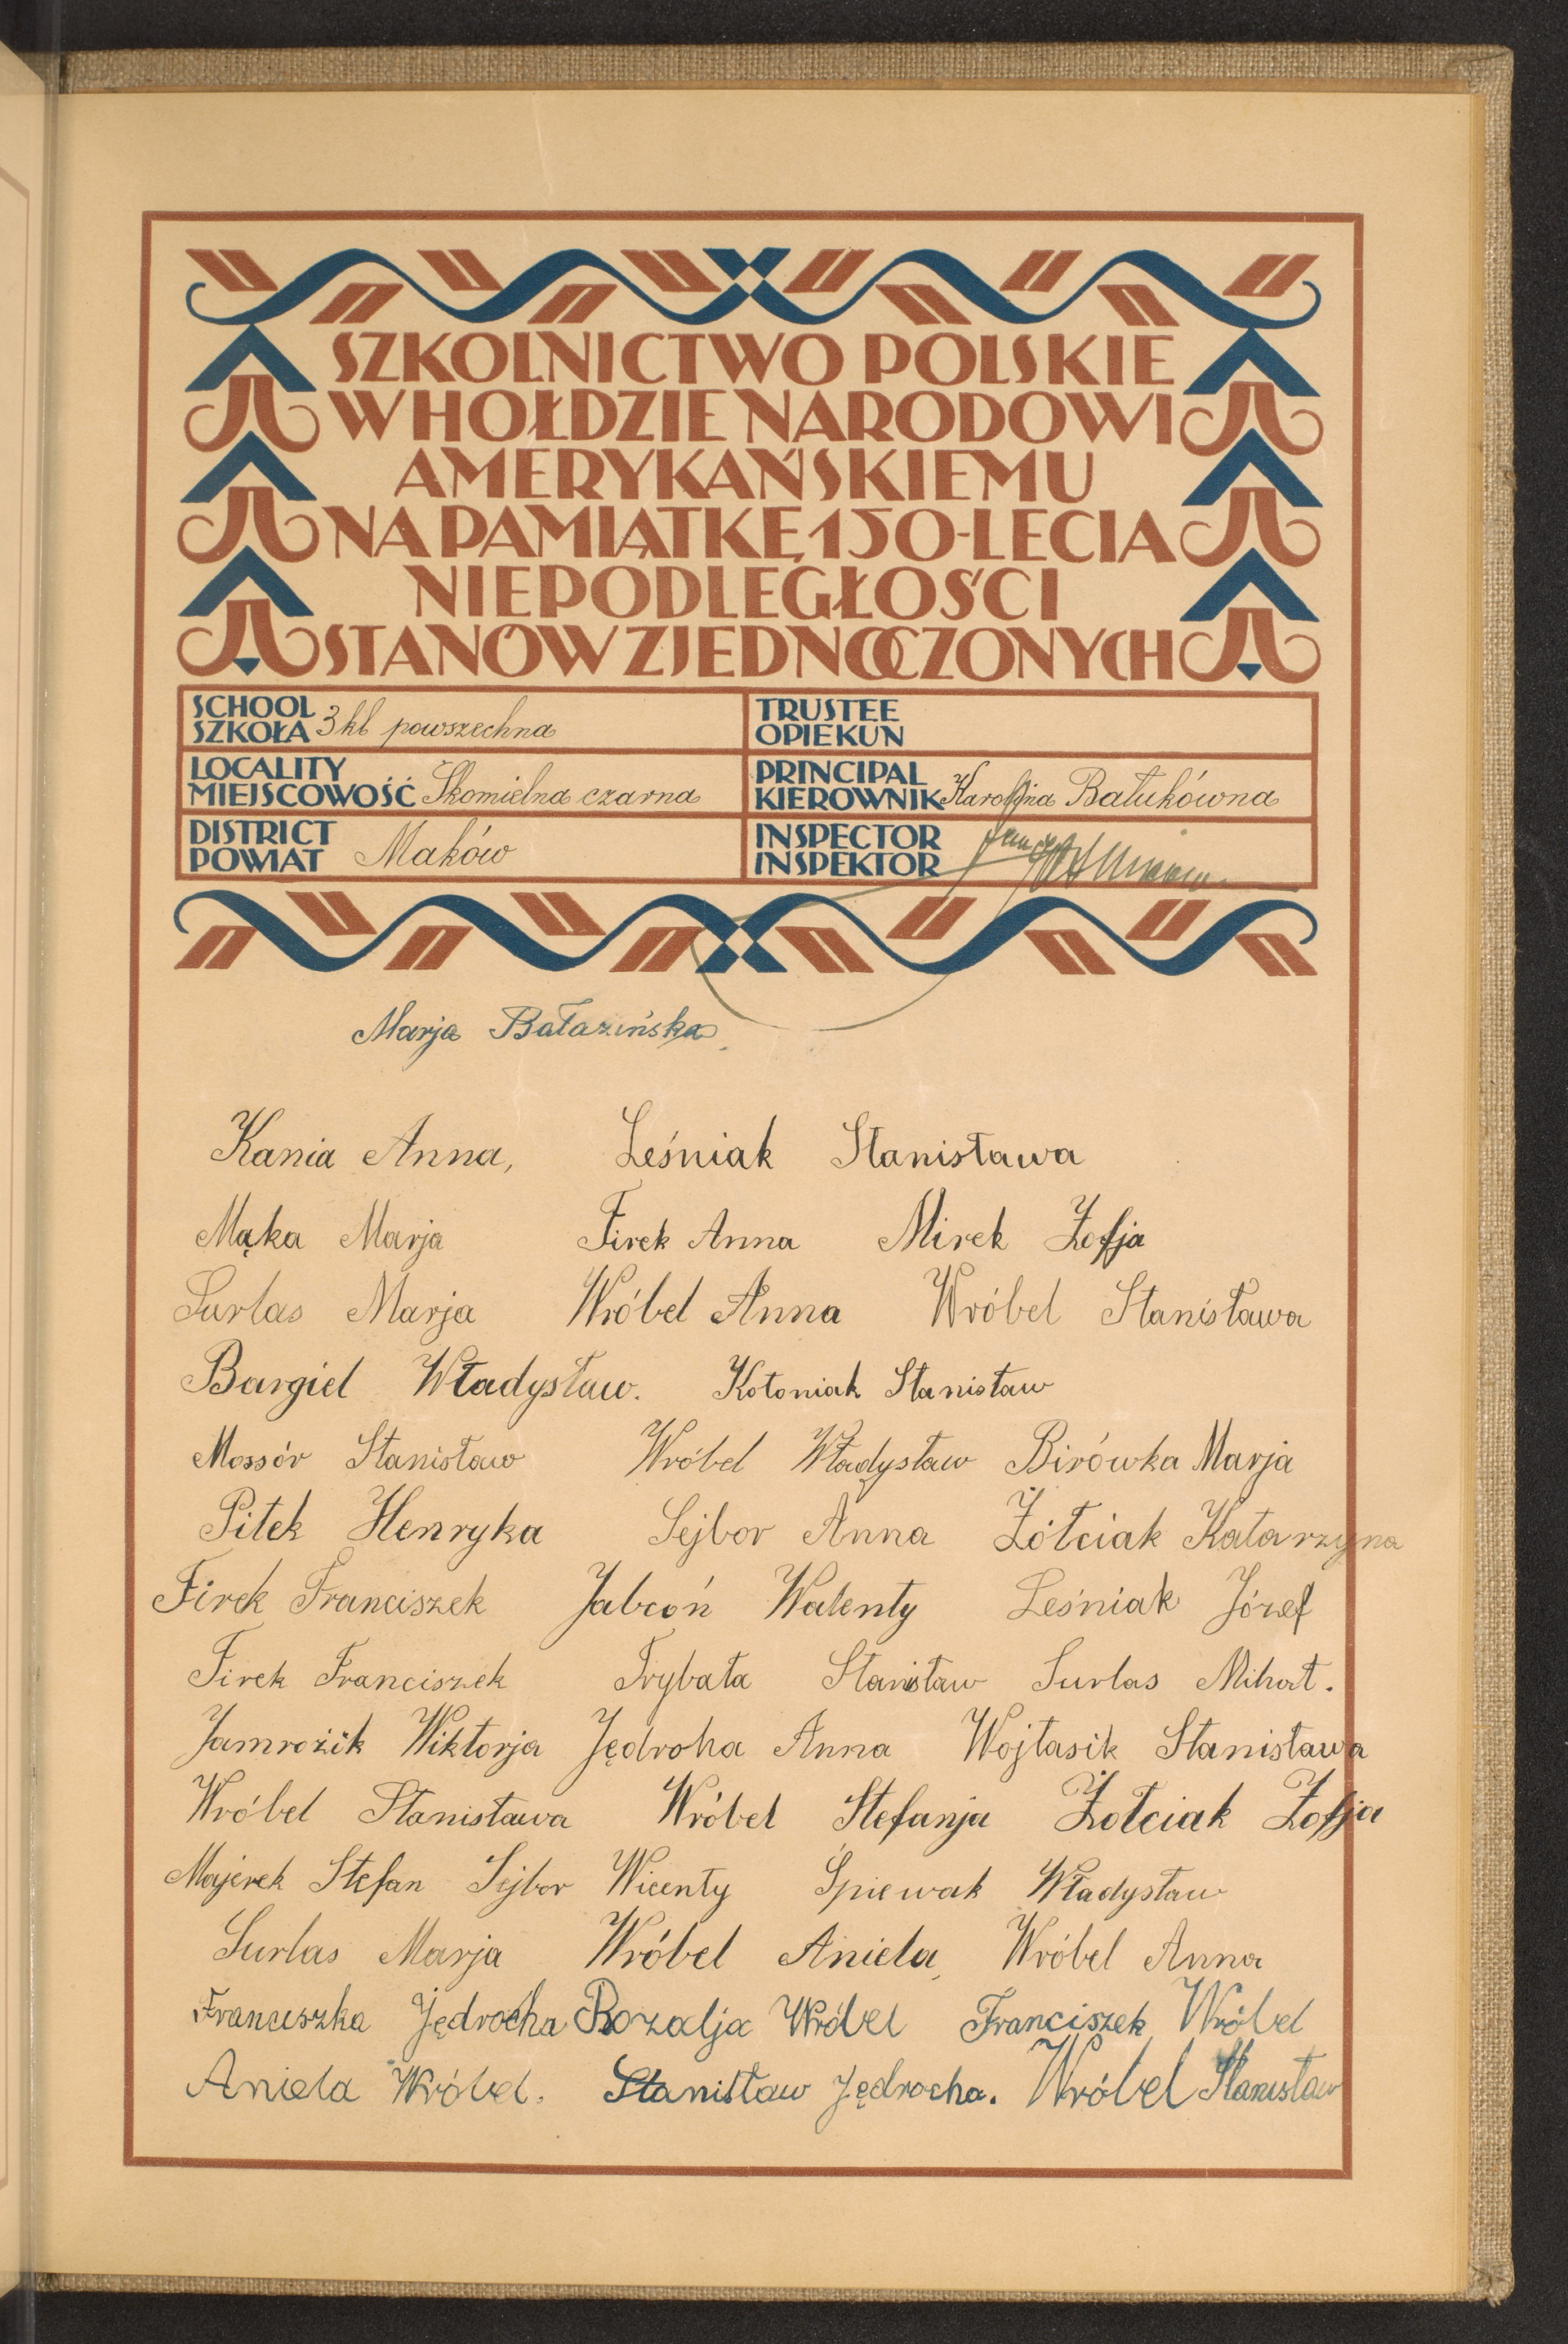 SZKOLNICTWO POLSKIE
W HOŁDZIE NARODOWI
AMERYKAŃSKIEMU
NA PAMIĄTKĘ 150-LECIA
NIEPODLEGŁOŚCI
STANÓW ZJEDNOCZONYCH
SCHOOL
SZKOŁA 3 kl powszechna
TRUSTEE
OPIEKUN
LOCALITY
MIEJSCOWOŚĆ Skomielna czarna
PRINCIPAL
KIEROWNIK Karolina Bałukówna
DISTRICT
POWIAT Maków
INSPECTOR
INSPEKTOR
Marja Bałazińska
Kania Anna, Leśniak Stanisława
Mąka Marja Firek Anna Mirek Zofja
Surlas Marja Wróbel Anna Wróbel Stanisława
Bargiel Władysław. Kołoniak Stanisław
Mossór Stanisław Wróbel Władysław Birówka Marja
Pitek Henryka Sejbor Anna Żółciak Katarzyna
Firek Franciszek Jabcoń Walenty Leśniak Józef
Firek Franciszek Trybała Stanisław Surlas Mihał.
Jamrozik Wiktorja Jędroha Anna Wojtasik Stanisława
Wróbel Stanisława Wróbel Stefanja Żołciak Zofja
Majerek Stefan Sejbor Wicenty Śpiewak Władysław
Surlas Marja Wróbel Aniela, Wróbel Anna
Franciszka Jędrocha Rozalja Wróbel Franciszek Wróbel
Aniela Wróbel. Stanisław Jędrocha. Wróbel Stanisław